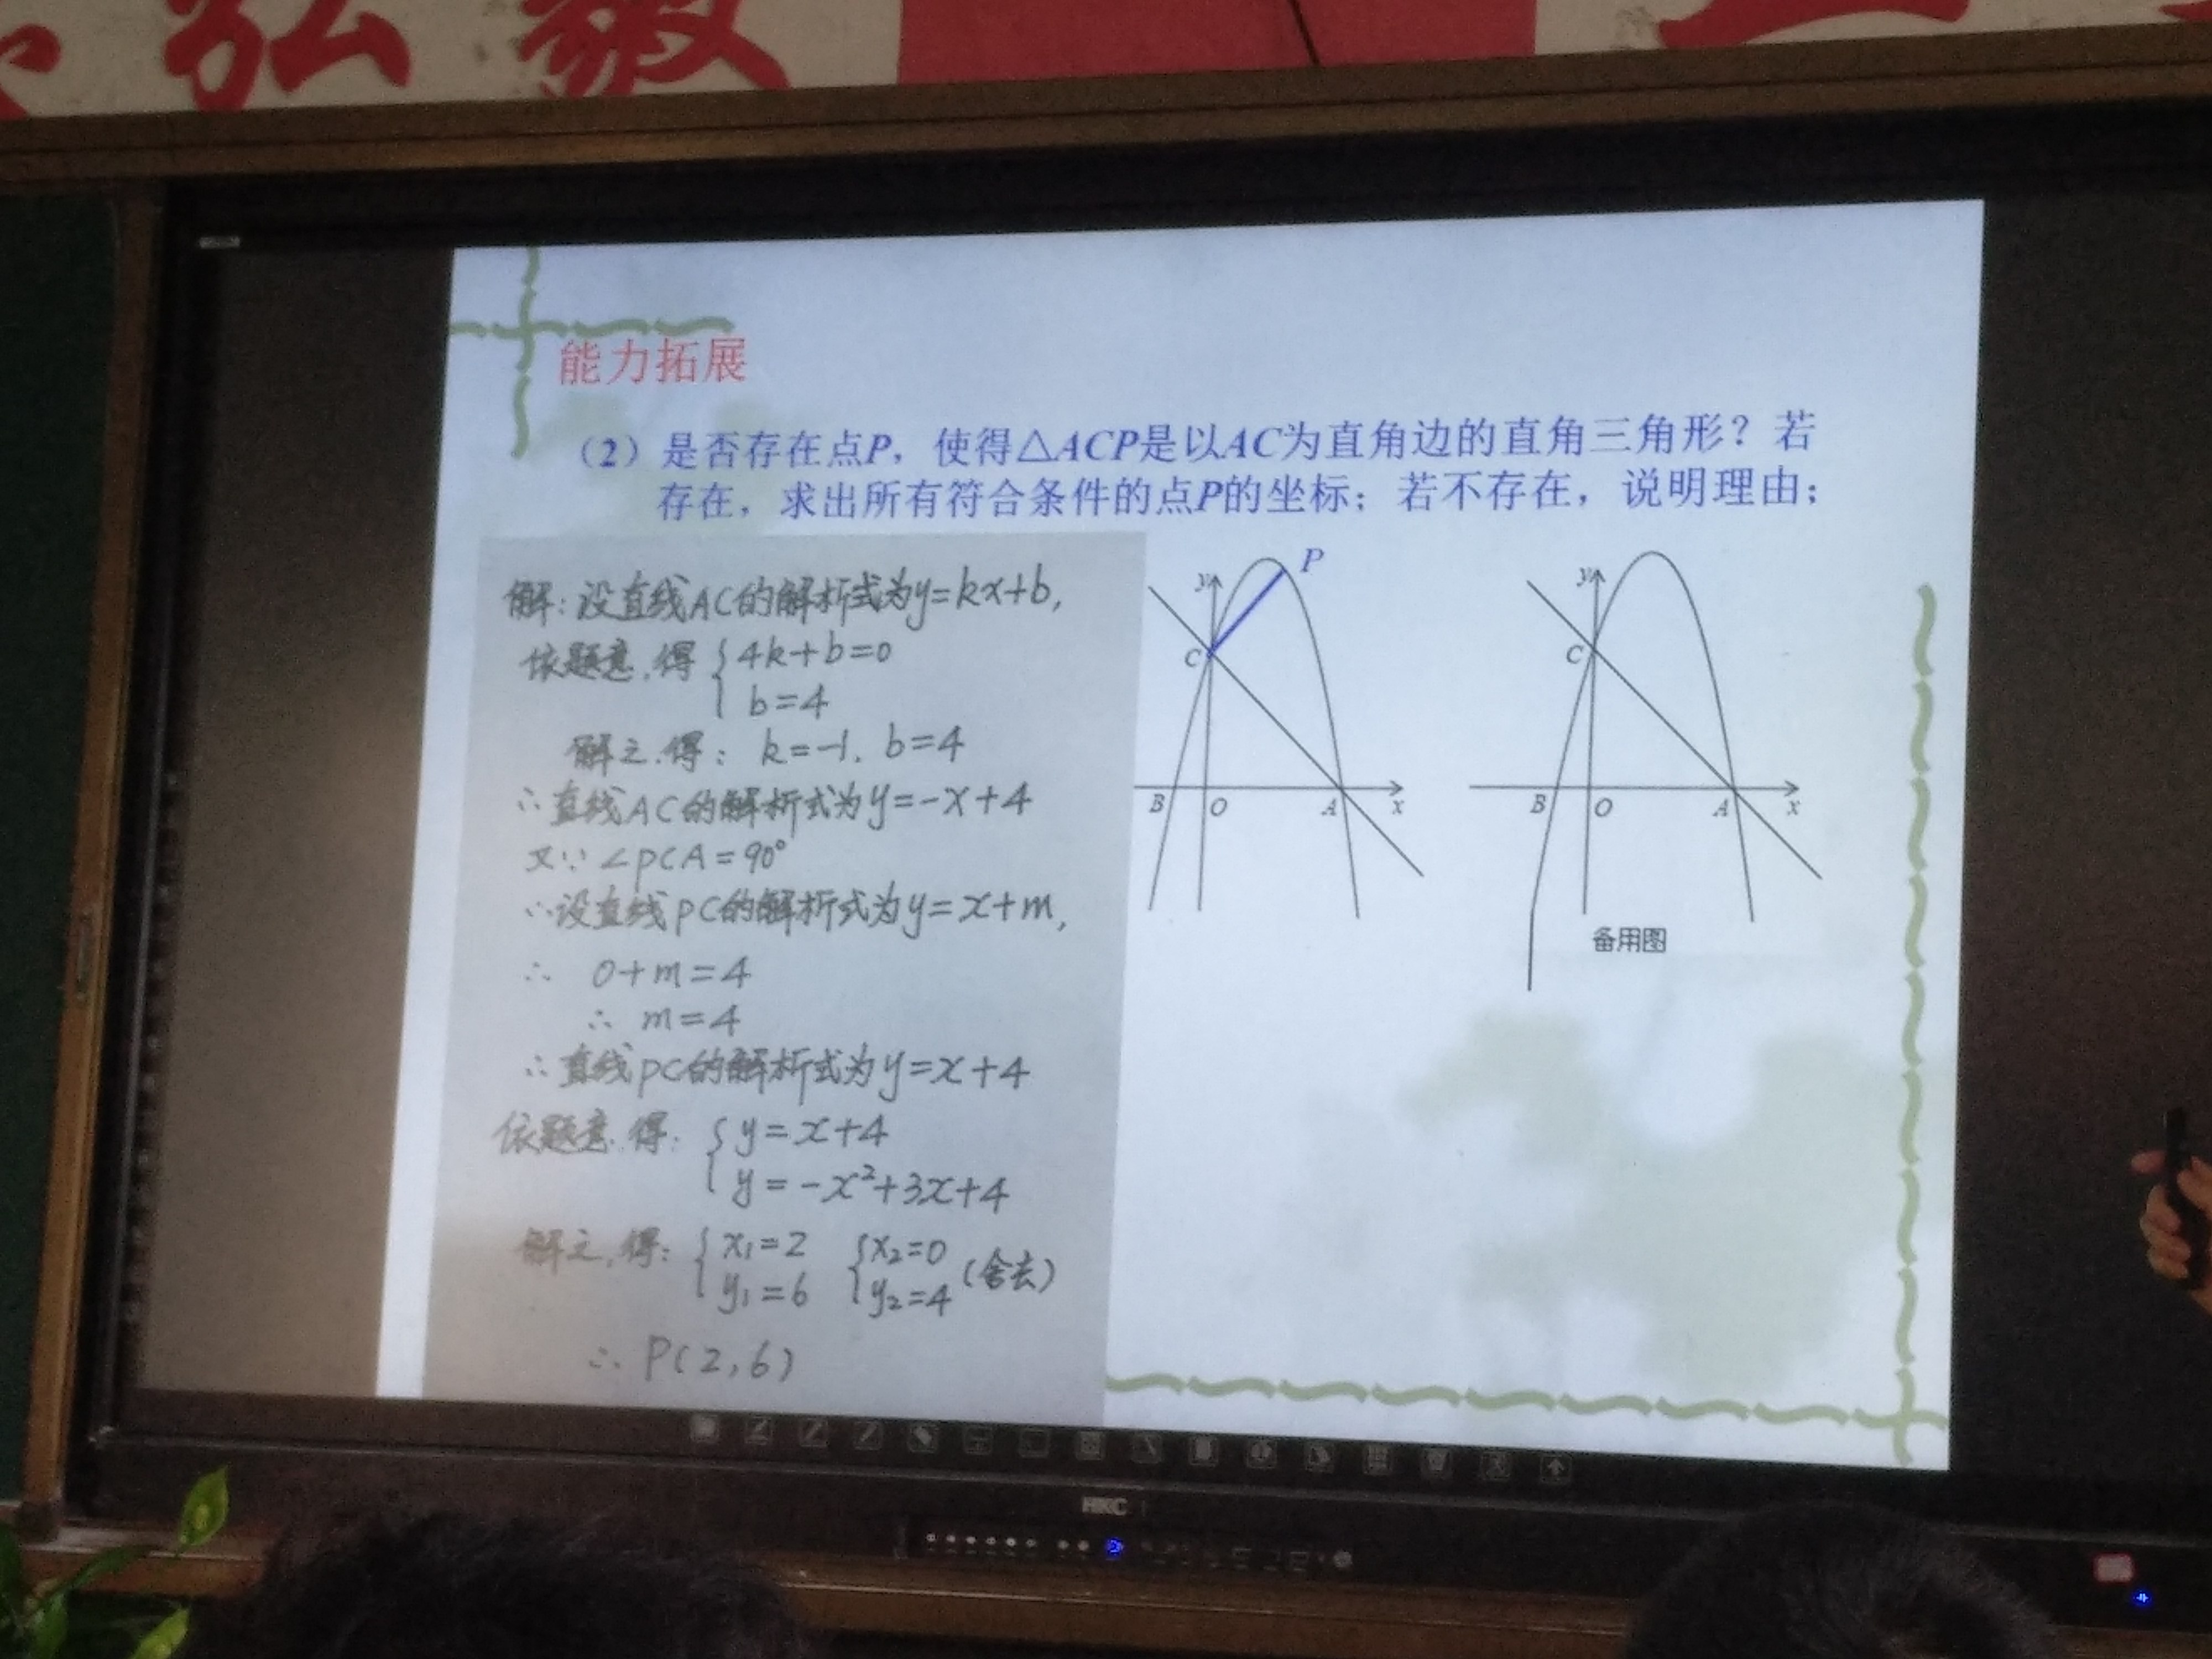 弘毅
能力拓展
（2）是否存在点P，使得△ACP是以AC为直角边的直角三角形？若
存在，求出所有符合条件的点P的坐标；若不存在，说明理由；
解：设直线AC的解析式为y=kx+b,
依题意,得 { 4k+b=0
b=4
解之.得： k=-1. b=4
∴直线AC的解析式为y=-x+4
又∵∠PCA=90°
∴设直线PC的解析式为y=x+m,
∴ 0+m=4
∴ m=4
∴直线PC的解析式为y=x+4
依题意.得: { y=x+4
y=-x²+3x+4
解之,得: { x₁=2 { x₂=0
y₁=6 y₂=4 (舍去)
∴ P(2,6)
P
y
C
B O A x
y
C
B O A x
备用图
HKC